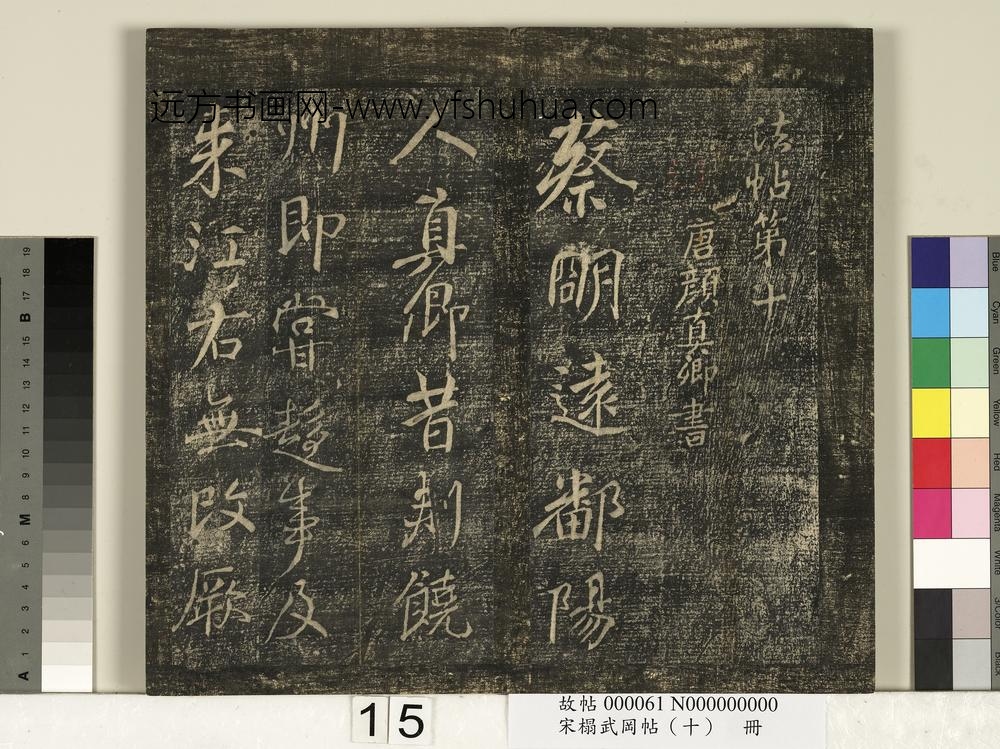 远方书画网-www.yfshuhua.com
法帖第十
唐顔真卿書
蔡明遠鄱陽
人真卿昔刺饒
州即嘗趨事及
来江右無改厥
15
故帖 000061 N000000000
宋榻武岡帖（十） 冊
19
18
17
B
15
14
13
12
11
10
9
8
M
6
5
4
3
2
1
A
Blue
Cyan
Green
Yellow
Red
Magenta
White
3/Color
Black